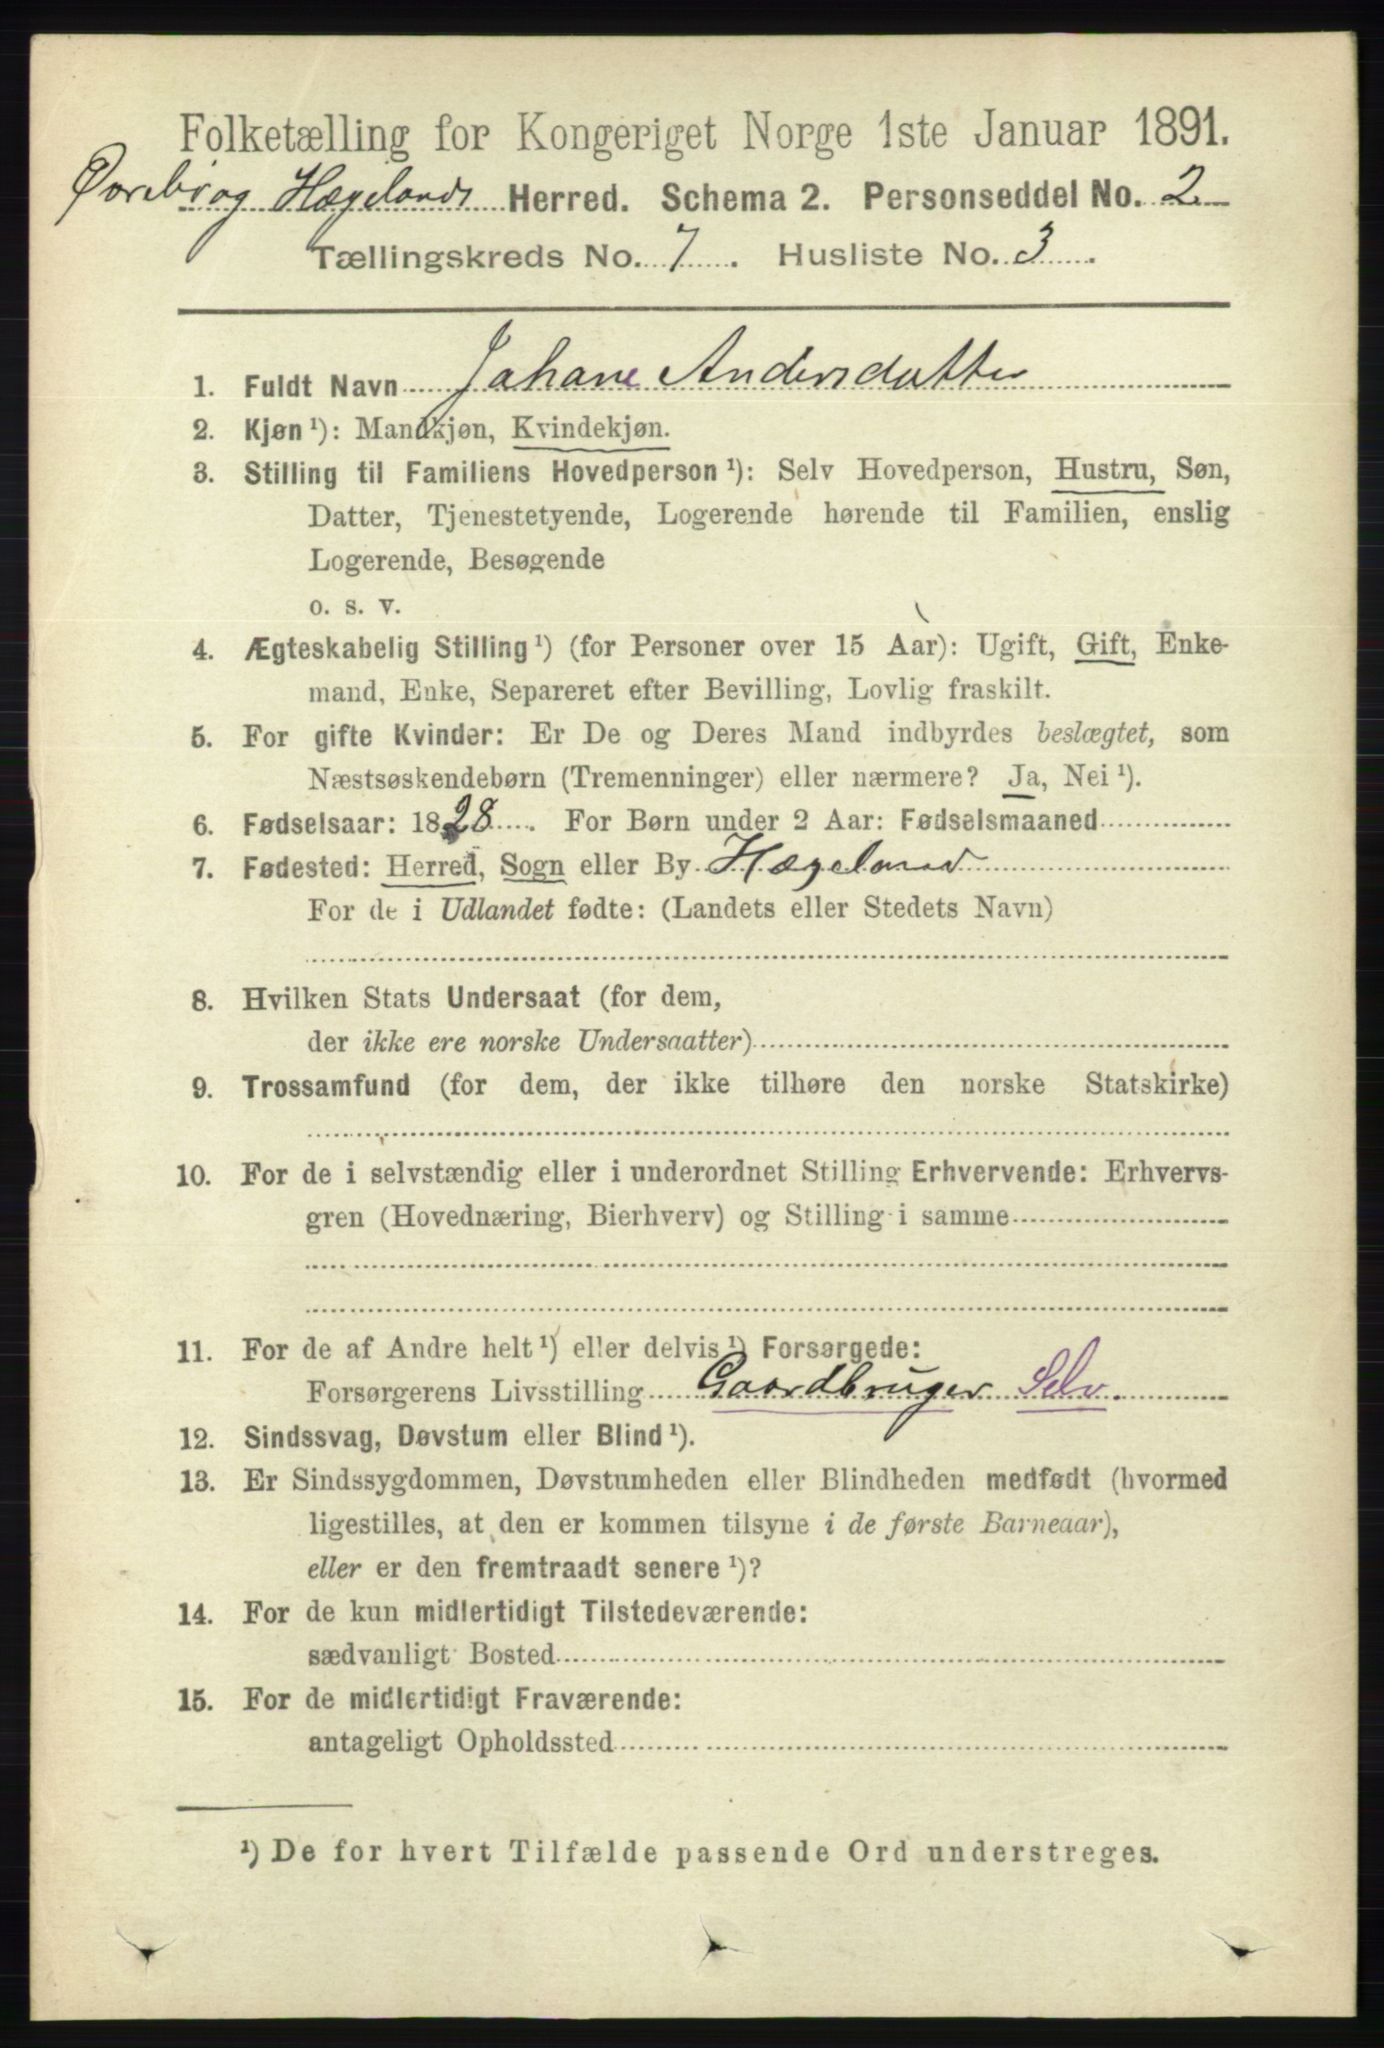 Folketælling for Kongeriget Norge 1ste Januar 1891.
Øvrebø og Hægelands Herred. Schema 2. Personseddel No. 2
Tællingskreds No. 7. Husliste No. 3.
1. Fuldt Navn Johane Andersdatter
2. Kjøn ¹): Mandkjøn, Kvindekjøn.
3. Stilling til Familiens Hovedperson ¹): Selv Hovedperson, Hustru, Søn,
Datter, Tjenestetyende, Logerende hørende til Familien, enslig
Logerende, Besøgende
o. s. v.
4. Ægteskabelig Stilling ¹) (for Personer over 15 Aar): Ugift, Gift, Enke-
mand, Enke, Separeret efter Bevilling, Lovlig fraskilt.
5. For gifte Kvinder: Er De og Deres Mand indbyrdes beslægtet, som
Næstsøskendebørn (Tremenninger) eller nærmere? Ja, Nei ¹).
6. Fødselsaar: 1828. For Børn under 2 Aar: Fødselsmaaned
7. Fødested: Herred, Sogn eller By Hægeland
For de i Udlandet fødte: (Landets eller Stedets Navn)
8. Hvilken Stats Undersaat (for dem,
der ikke ere norske Undersaatter)
9. Trossamfund (for dem, der ikke tilhøre den norske Statskirke)
10. For de i selvstændig eller i underordnet Stilling Erhvervende: Erhvervs-
gren (Hovednæring, Bierhverv) og Stilling i samme
11. For de af Andre helt ¹) eller delvis ¹) Forsørgede:
Forsørgerens Livsstilling Gaardbruger Selv.
12. Sindssvag, Døvstum eller Blind ¹).
13. Er Sindssygdommen, Døvstumheden eller Blindheden medfødt (hvormed
ligestilles, at den er kommen tilsyne i de første Barneaar),
eller er den fremtraadt senere ¹)?
14. For de kun midlertidigt Tilstedeværende:
sædvanligt Bosted
15. For de midlertidigt Fraværende:
antageligt Opholdssted
¹) De for hvert Tilfælde passende Ord understreges.